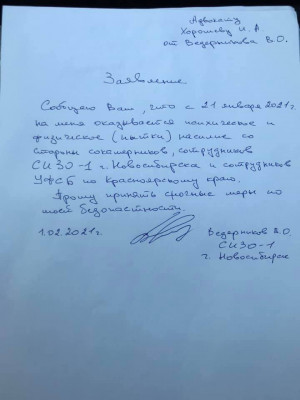 Адвокату
Хорошеву И. А.
от Ведерникова В.О.
Заявление
Сообщаю Вам, что с 21 января 2021г.
на меня оказывается психическое и
физическое (пытки) насилие со
стороны сокамерников, сотрудников
СИЗО-1 г. Новосибирска и сотрудников
УФСБ по Красноярскому краю.
Прошу принять срочные меры по
моей безопасности.
1.02.2021г.
Ведерников В.О.
СИЗО-1
г. Новосибирск